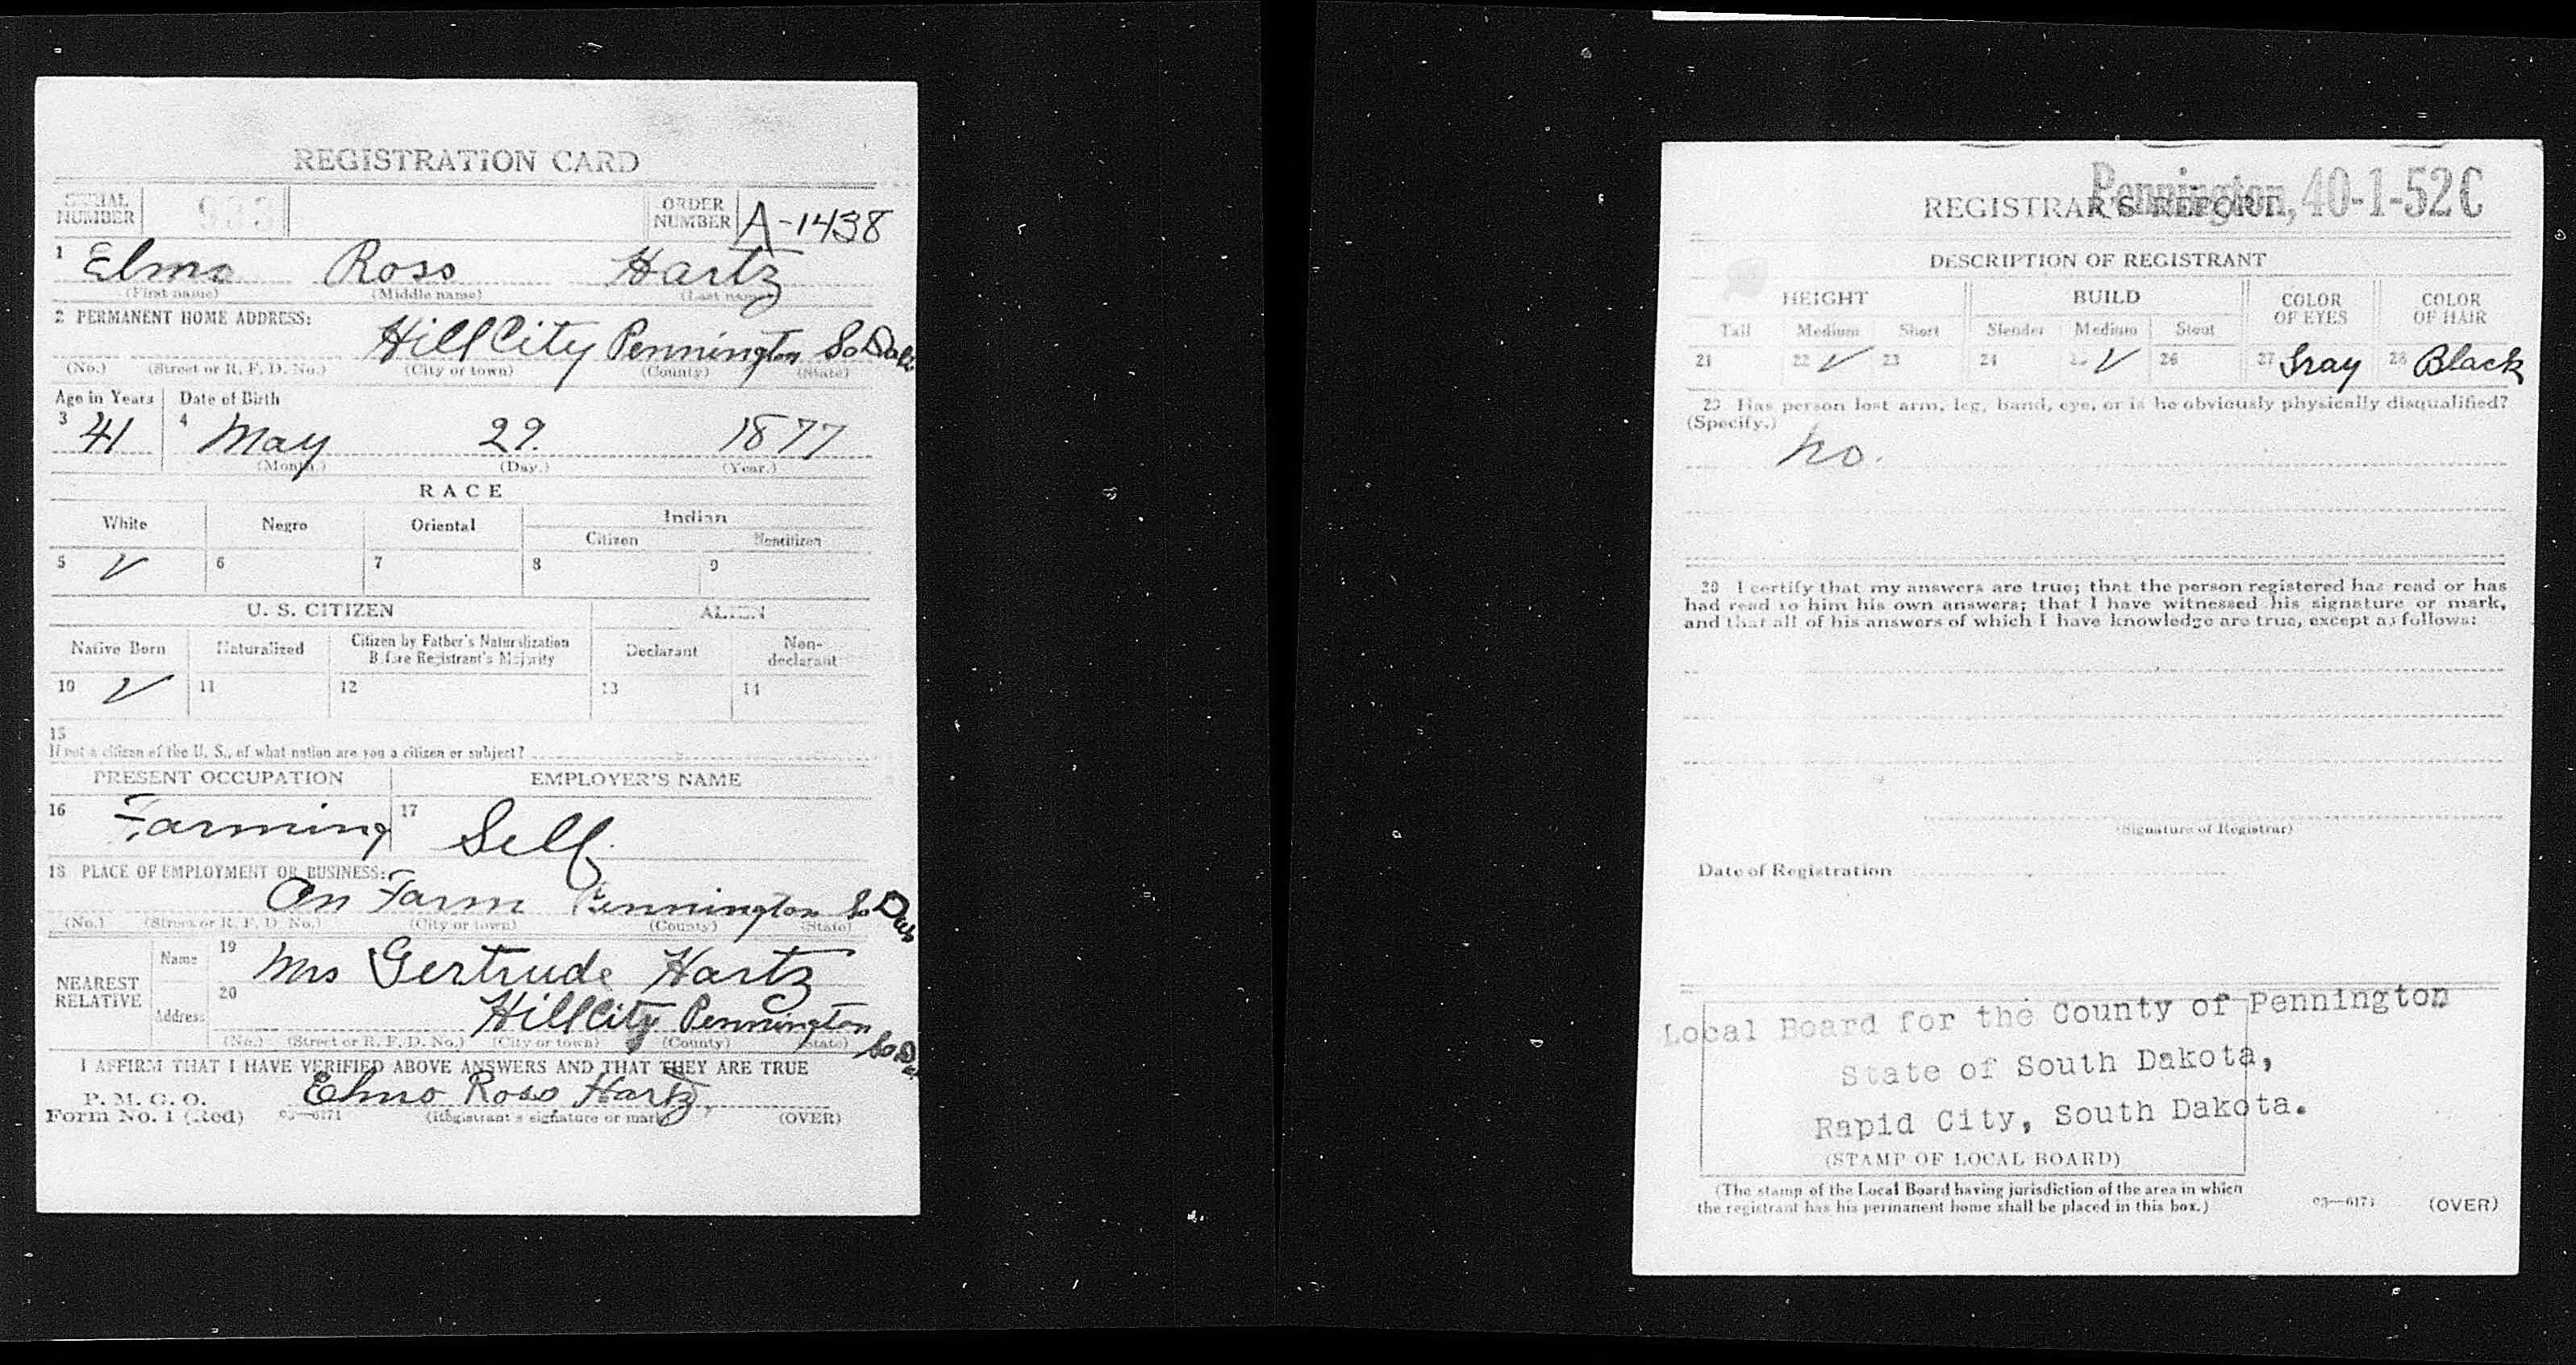 REGISTRATION CARD
SERIAL NUMBER 933 ORDER NUMBER A-1438
1 Elmo Ross Hartz
(First name) (Middle name) (Last name)
2 PERMANENT HOME ADDRESS:
Hill City Pennington So Dak
(No.) (Street or R. F. D. No.) (City or town) (County) (State)
Age in Years Date of Birth
3 41 4 May 29. 1877
(Month.) (Day.) (Year.)
RACE
White Negro Oriental Indian
Citizen Noncitizen
5 ✓ 6 7 8 9
U. S. CITIZEN ALIEN
Native Born Naturalized Citizen by Father's Naturalization Before Registrant's Majority Declarant Non-declarant
10 ✓ 11 12 13 14
15
If not a citizen of the U. S., of what nation are you a citizen or subject?
PRESENT OCCUPATION EMPLOYER'S NAME
16 Farming 17 Self.
18 PLACE OF EMPLOYMENT OR BUSINESS:
On Farm Pennington So Dak
(No.) (Street or R. F. D. No.) (City or town) (County) (State)
NEAREST RELATIVE
Name 19 Mrs Gertrude Hartz
Address 20 Hill City Pennington So D.
(No.) (Street or R. F. D. No.) (City or town) (County) (State)
I AFFIRM THAT I HAVE VERIFIED ABOVE ANSWERS AND THAT THEY ARE TRUE
P. M. G. O.
Form No. 1 (Red) 03—6171 Elmo Ross Hartz
(Registrant's signature or mark) (OVER)
Pennington, 40-1-52C
REGISTRAR'S REPORT
DESCRIPTION OF REGISTRANT
HEIGHT BUILD COLOR OF EYES COLOR OF HAIR
Tall Medium Short Slender Medium Stout
21 22 ✓ 23 24 25 ✓ 26 27 Gray 28 Black
29 Has person lost arm, leg, hand, eye, or is he obviously physically disqualified?
(Specify.) no.
30 I certify that my answers are true; that the person registered has read or has
had read to him his own answers; that I have witnessed his signature or mark,
and that all of his answers of which I have knowledge are true, except as follows:
(Signature of Registrar)
Date of Registration
Local Board for the County of Pennington
State of South Dakota,
Rapid City, South Dakota.
(STAMP OF LOCAL BOARD)
(The stamp of the Local Board having jurisdiction of the area in which
the registrant has his permanent home shall be placed in this box.)
03—6171 (OVER)